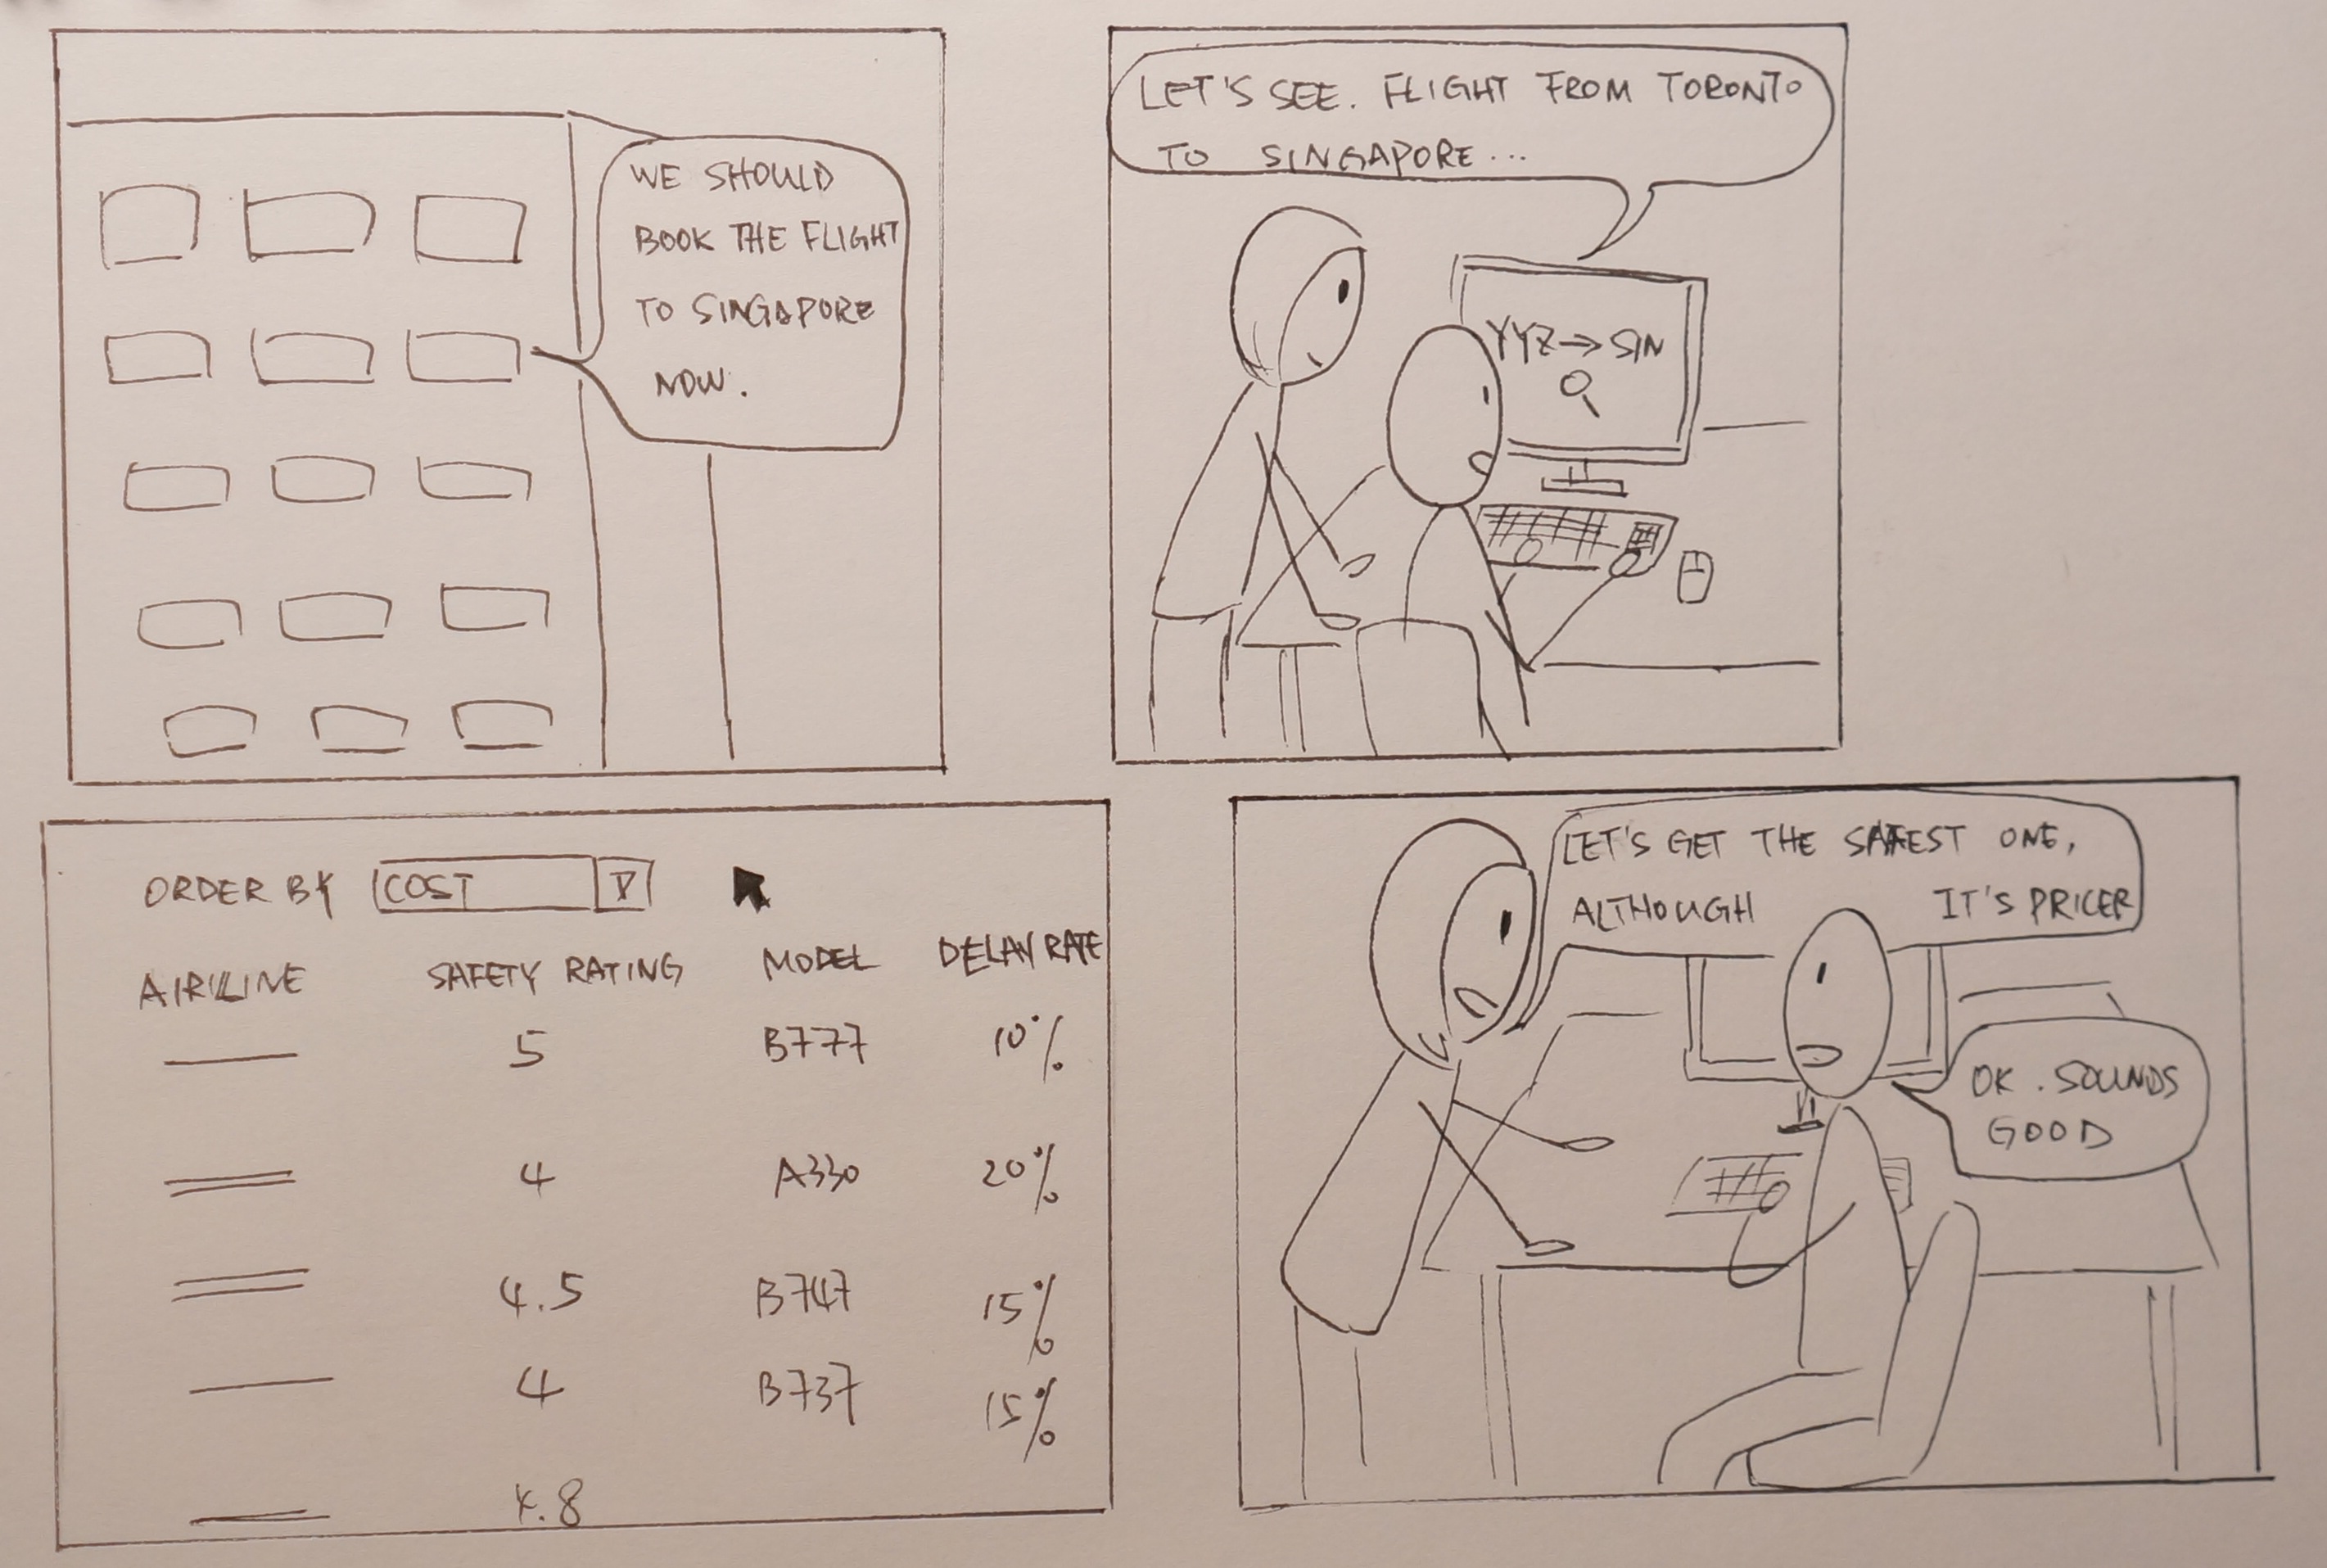 WE SHOULD
BOOK THE FLIGHT
TO SINGAPORE
NOW.
LET'S SEE. FLIGHT FROM TORONTO
TO SINGAPORE...
YYZ→SIN
ORDER BY COST
AIRLINE SAFETY RATING MODEL DELAY RATE
5 B777 10%
4 A330 20%
4.5 B747 15%
4 B737 15%
4.8
LET'S GET THE SAFEST ONE,
ALTHOUGH IT'S PRICER
OK. SOUNDS
GOOD